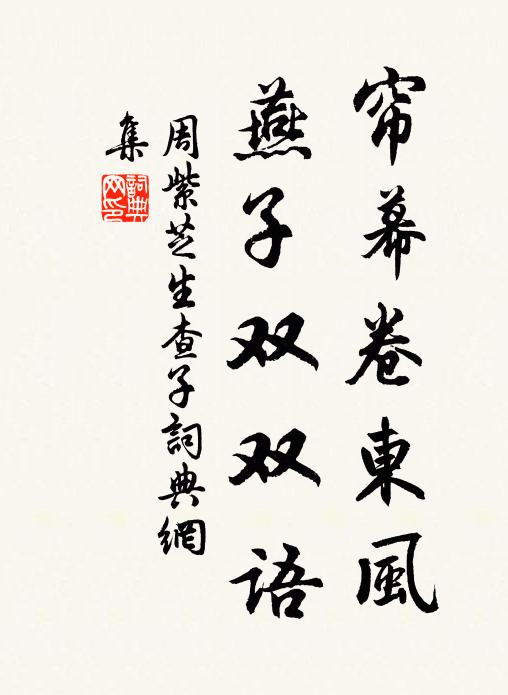 帘幕卷東風
燕子双双語
周紫芝生查子詞典網
集
詞典
网印